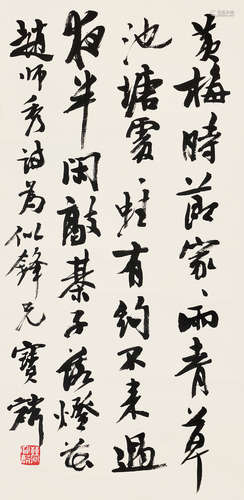 黄梅時節家々雨青草
池塘處々蛙有約不来過
夜半閑敲棊子落燈花
趙师秀詩為似鋒兄 寶麟